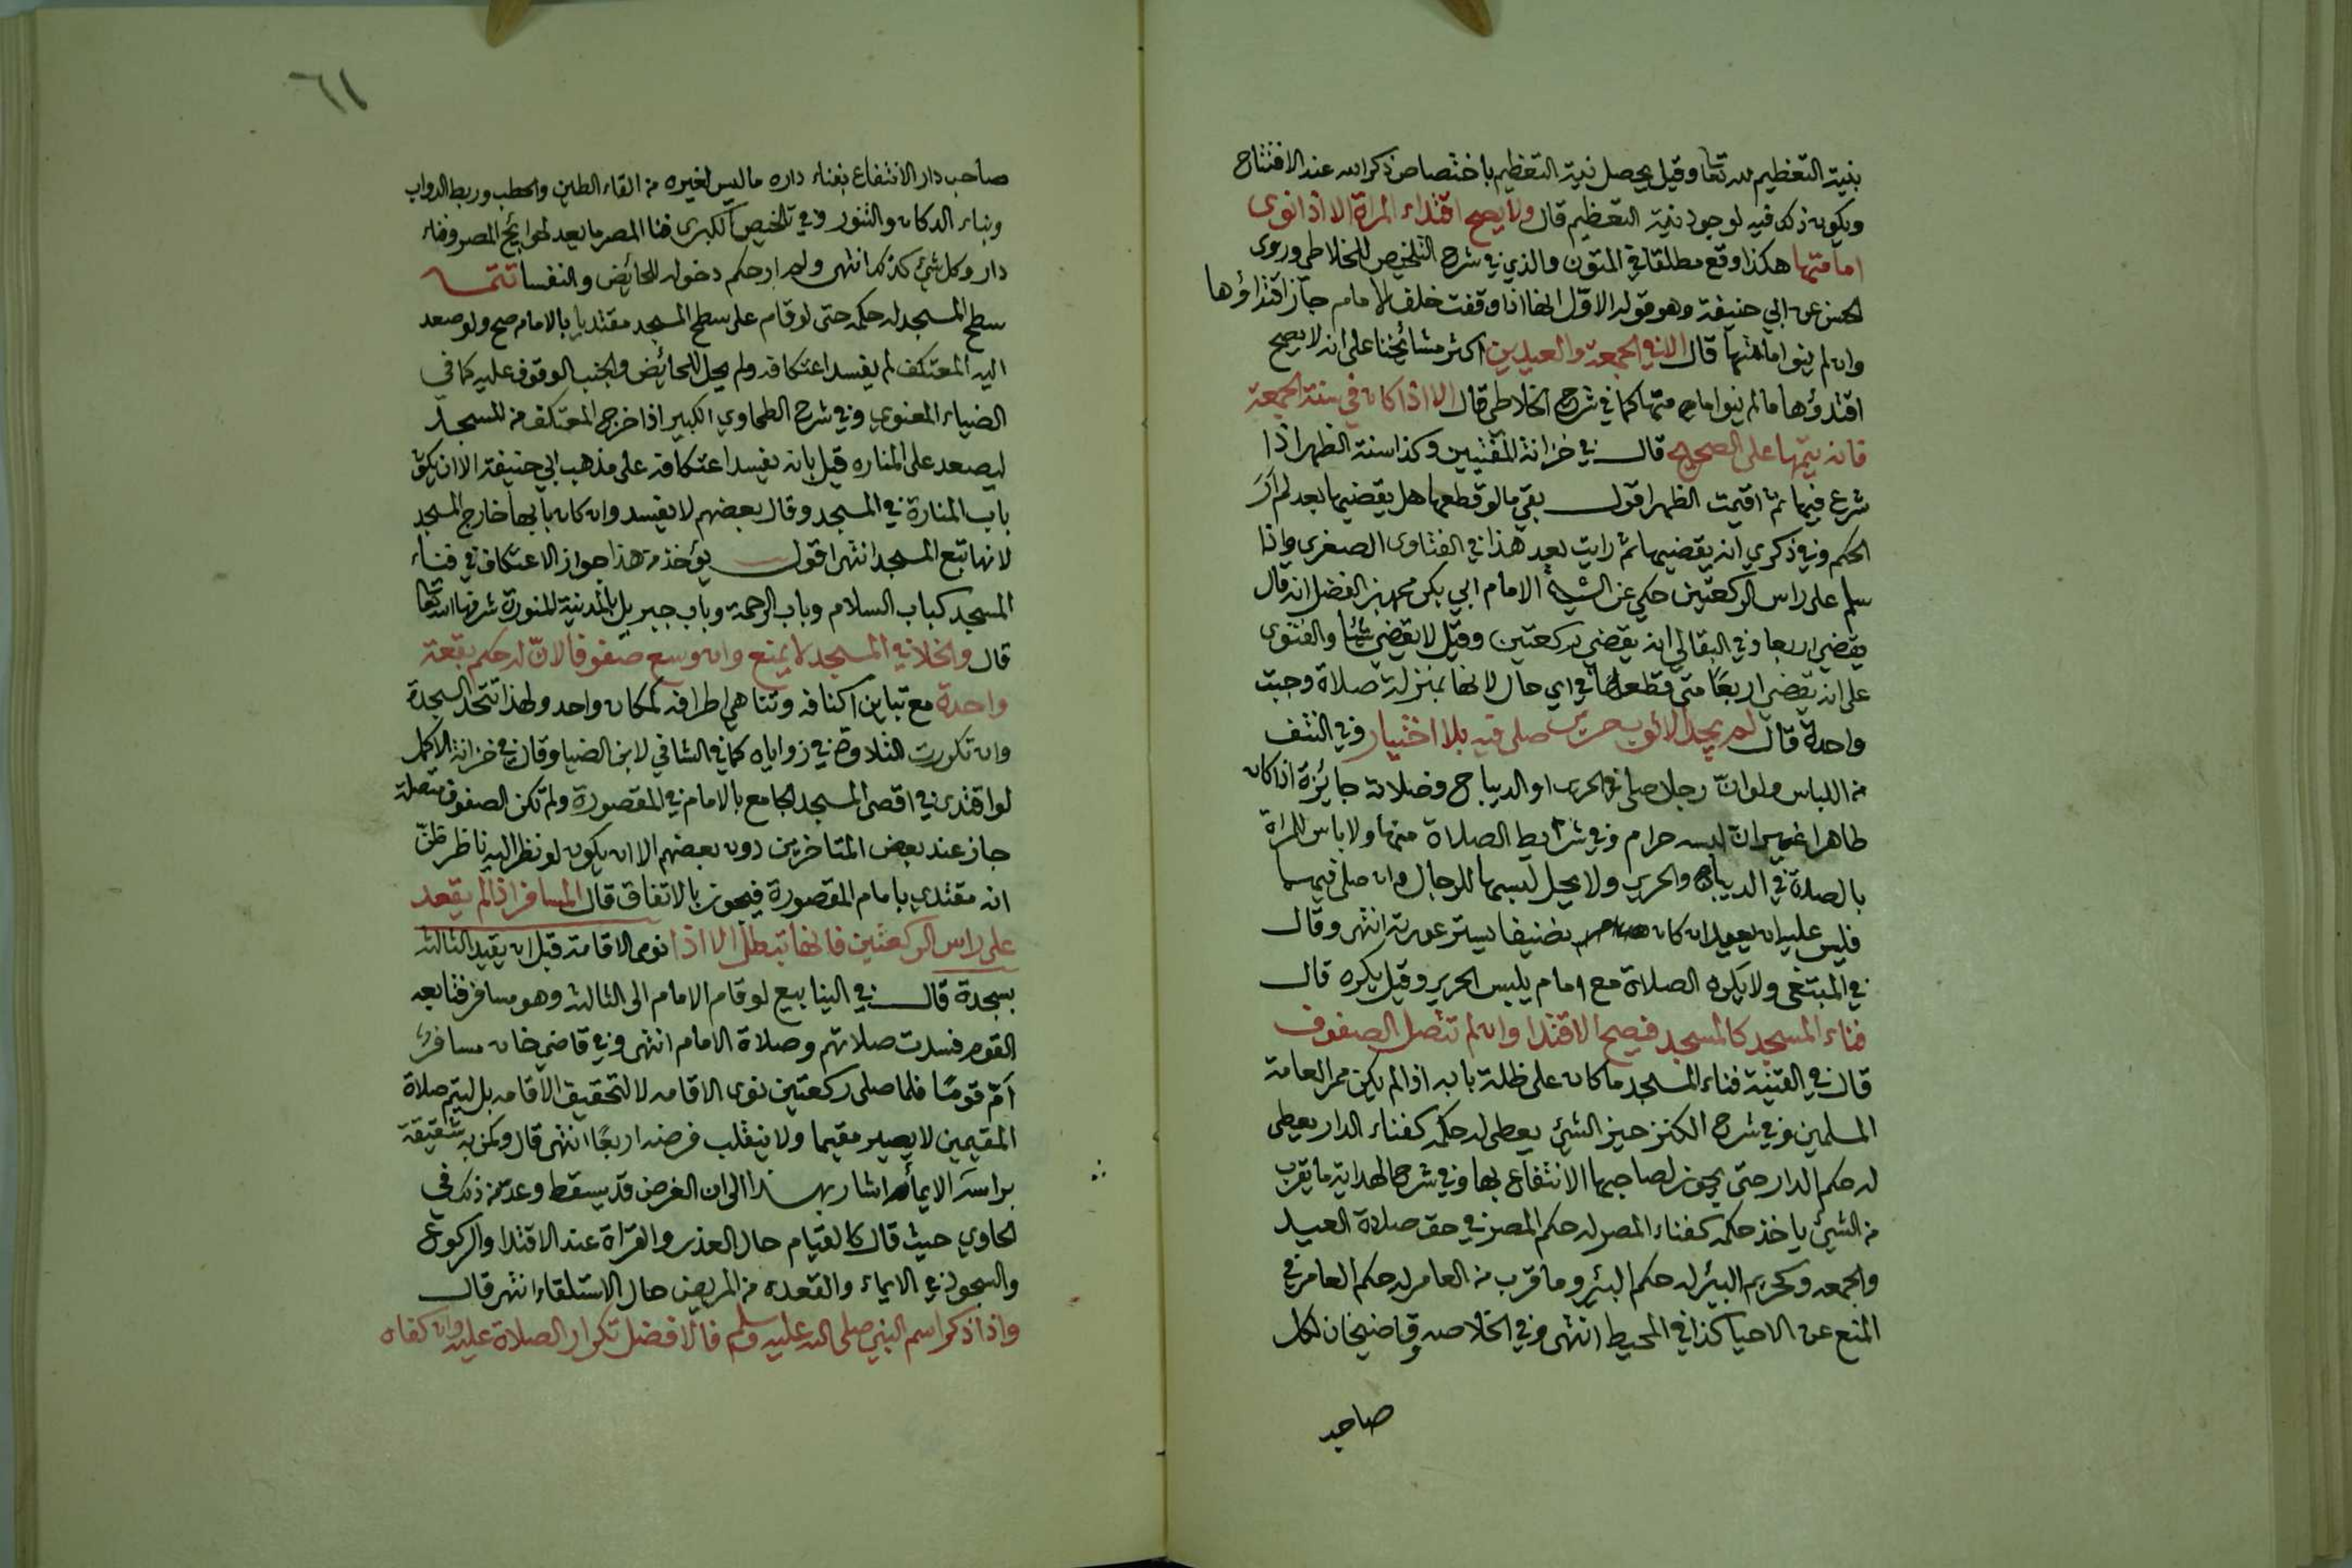 بنية التعظيم لله تعا وقيل يحصل نية التعظيم باختصاص ذكر الله عند الافتتاح
ويكون ذلك فيه لوجود نية التعظيم قال ولا يصح اقتداء المراة الا اذا نوى
امامتها هكذا وقع مطلقا في المتون والذي في شرح التلخيص للخلاطي وروى
الحسن عن ابي حنيفة وهو قوله الاول انها اذا وقفت خلف الامام جاز اقتداؤها
وان لم ينو امامتها قال الا في الجمعة والعيدين اكثر مشائخنا على انه لا يصح
اقتدؤها ما لم ينو امامتها كما في شرح الخلاطي قال الا اذا كان في سنة الجمعة
فانه يتمها على الصحيح قال في خزانة المفتيين وكذا سنة الظهر اذا
شرع فيها ثم اقيمت الظهر اقول بقي ما لو قطعها هل يقضيها بعد لم ار
الحكم وفي ذكري انه يقضيها ثم رايت بعد هذا في الفتاوى الصغرى واذا
سلم على راس الركعتين حكي عن الشيخ الامام ابي بكر محمد بن الفضل انه قال
يقضي اربعا وفي البقالي انه يقضي ركعتين وقيل لا يقضي شيئا والفتوى
على انه يقضي اربعا متى قطعها في اي حال لانها بمنزلة صلاة وجبت
واحدة قال لم يجد الا ثوب حرير صلى فيه بلا اختيار وفي النتف
من اللباس ولو ان رجلا صلى في الحرير او الديباج فصلاته جايزة اذا كان
طاهرا غير ان لبسه حرام وفي شرايط الصلاة منها ولا باس للمراة
بالصلاة في الديباج والحرير ولا يحل لبسها للرجال وان صلى فيهما
فليس عليه ان يعيد ان كان ضيفا يستر عورته انتهى وقال
في المبتغى ولا يكره الصلاة مع امام يلبس الحرير وقيل يكره قال
فناء المسجد كالمسجد فيصح الاقتدا وان لم تتصل الصفوف
قال في القنية فناء المسجد ما كان على ظلة بابه اذا لم يكن ممر العامة
المسلمين وفي شرح الكنز حيز الشيئ يعطى له حكمه كفناء الدار يعطى
له حكم الدار حتى يجوز لصاحبها الانتفاع بها وفي شرح الهداية ما يقرب
من الشيئ ياخذ حكمه كفناء المصر له حكم المصر في حق صلاة العيد
والجمعه وكحريم البئر له حكم البئر وما قرب من العامر له حكم العامر في
المنع عن الاحيا كذا في المحيط انتهى وفي الخلاصه وقاضيخان لكل
صاحب
٦١
صاحب دار الانتفاع بفناء داره ما ليس لغيره من القاء الطين والحطب وربط الدواب
وبناء الدكان والتنور وفي تلخيص الكبرى فنا المصر ما يعد لحوايج المصر وفناء
دار وكل شئ كذلك انتهى ولم ار حكم دخوله للحائض والنفسا تتمه
سطح المسجد له حكمه حتى لو قام على سطح المسجد مقتديا بالامام صح ولو صعد
اليه المعتكف لم يفسد اعتكافه ولم يحل للحائض والجنب الوقوف عليه كما في
الضياء المعنوي وفي شرح الطحاوي الكبير اذا خرج المعتكف من المسجد
ليصعد على المناره قيل بانه يفسد اعتكافه على مذهب ابي حنيفة الا ان يكون
باب المنارة في المسجد وقال بعضهم لا يفسد وان كان بابها خارج المسجد
لانها تبع المسجد انتهى اقول يؤخذ من هذا جواز الاعتكاف في فناء
المسجد كباب السلام وباب الرحمة وباب جبريل بالمدينة المنورة شرفها الله تعا
قال والخلا في المسجد لا يمنع وان وسع صفوفا لان له حكم بقعة
واحدة مع تباين اكنافه وتناهي اطرافه كمكان واحد ولهذا تتحد السجدة
وان تكررت التلاوة في زواياه كما في الشافي لابن الضيا وقال في خزانة الاكمل
لو اقتدى في اقصى المسجد الجامع بالامام في المقصورة ولم تكن الصفوف متصلة
جاز عند بعض المتاخرين دون بعضهم الا ان يكون لو نظر اليه ناظر ظن
انه مقتدي بامام المقصورة فيجوز بالاتفاق قال المسافر اذا لم يقعد
على راس الركعتين فانها تبطل الا اذا نوى الاقامة قبل ان يقيد الثالثة
بسجدة قال في الينابيع لو قام الامام الى الثالثة وهو مسافر فتابعه
القوم فسدت صلاتهم وصلاة الامام انتهى وفي قاضي خان مسافر
ام قوما فلما صلى ركعتين نوى الاقامه لا لتحقيق الاقامه بل ليتم صلاة
المقيمين لا يصير مقيما ولا ينقلب فرضه اربعا انتهى قال وكمن به شقيقة
براسه الايماء اشار بهذا الى ان الفرض قد يسقط وعد من ذلك في
الحاوي حيث قال كالقيام حال العذر والقراة عند الاقتدا والركوع
والسجود في الايماء والقعده من المريض حال الاستلقاء انتهى قال
واذا ذكر اسم النبي صلى الله عليه وسلم فالافضل تكرار الصلاة عليه وان كفاه